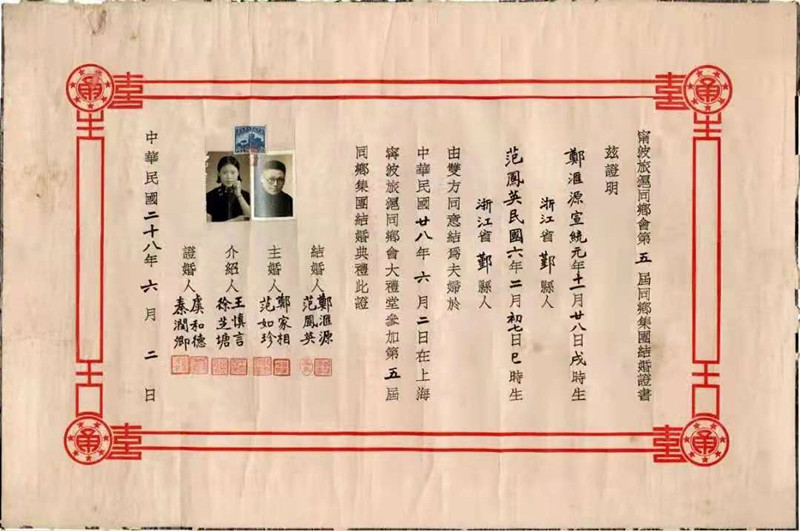 甯波旅滬同鄉會第五屆同鄉集團結婚證書
茲證明
鄭滙源宣統元年十一月廿八日戌時生
浙江省鄞縣人
范鳳英民國六年二月初七日巳時生
浙江省鄞縣人
由雙方同意結爲夫婦於
中華民國廿八年六月二日在上海
甯波旅滬同鄉會大禮堂參加第五屆
同鄉集團結婚典禮此證
結婚人 鄭滙源 范鳳英
主婚人 鄭家相 范如珍
介紹人 王慎言 徐芝塘
證婚人 虞和德 秦潤卿
中華民國二十八年六月二日